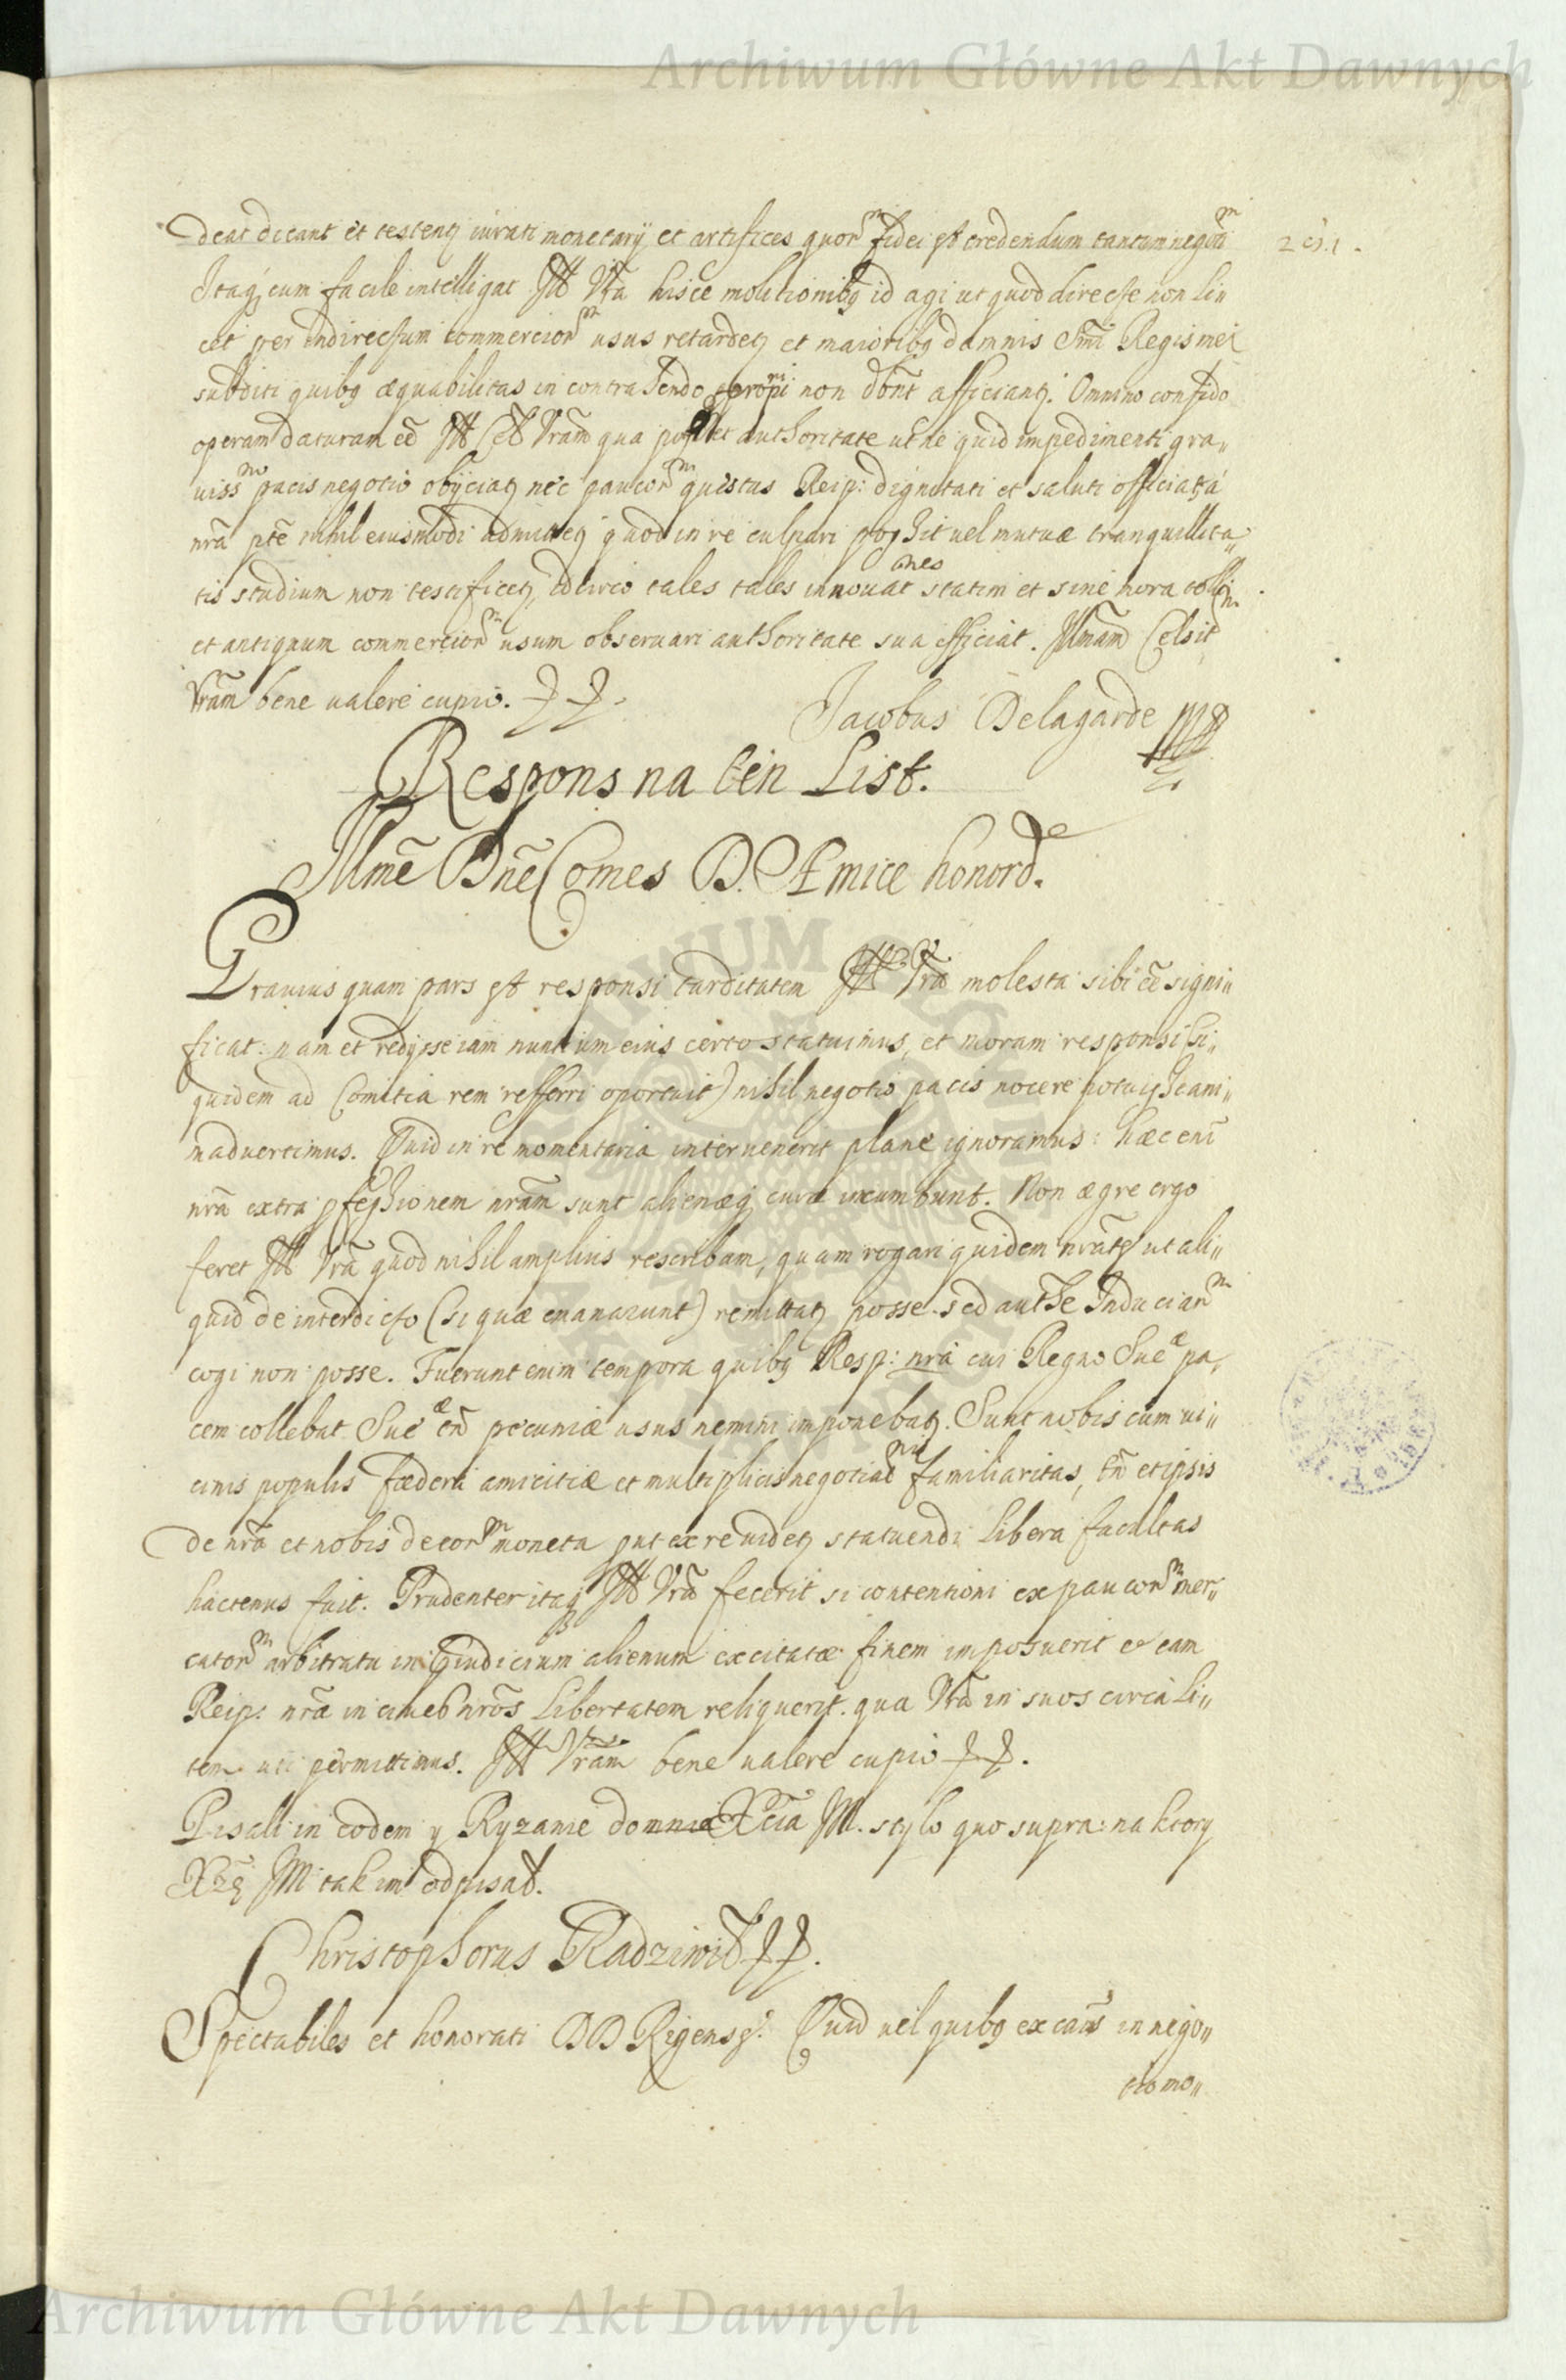 Archiwum Główne Akt Dawnych
deat dicant et testentq iurati monetarij et artifices quorm fidei est credendum tantum negotii
Itaq cum facile intelligat Ill Vra hisce molitionibq id agi ut quod directe non li„
cet per indirectum commerciorm usus retardetq et maioribq damnis Smi Regis mei
subditi quibq æquabilitas in contrahendo non dbnt afficiantq. Omnino confido
operam daturam eē Ill Cels Vram qua pollet authoritate ut ne quid impedimenti gra„
uissmo pacis negotio obijciatq nec paucorm questus Reip: dignitati et saluti officiatq á
nrā ptē nihil eiusmodi admittetq quod in re culpari possit uel mutuæ tranquillita„
tis studium non testificetq, idcirco tales tales innouat̄ones statim et sine mora tolli
et antiquum commerciorm usum obseruari authoritate sua efficiat. Illmam Celsit
Vram bene ualere cupio.
Jacobus Delagarde mp
Respons na ten List.
Illmē Dnē Comes D. Amice honorde.
Grauius quam pars est responsi tarditatem Ill Vra molesta sibi eē signi„
ficat: nam et redijsse iam nuntium eius certo statuimus, et moram responsi (si„
quidem ad Comitia rem refferri oportuit) nihil negotio pacis nocere potuisse ani„
maduertimus. Quid in re momentaria interuenerit plane ignoramus: hæc enī
nrā extra pfessionem nrām sunt alienæq curæ incumbunt. Non ægre ergo
feret Ill Vrā quod nihil amplius rescribam, quam rogari quidem nrātes ut ali„
quid de interdicto (si quæ emanarunt) remittatq posse sed authe Induciarm
cogi non posse. Fuerunt enim tempora quibq Resp: nrā cui Regno Sueæ pa„
cem collebat Sueæ tn̄ pecuniæ usus nemini imponebatq. Sunt nobis cum ui„
cinis populis fœdera amicitiæ et multiplicis negotiat familiaritas, tn̄ et ipsis
de nrā et nobis de eorm moneta put ex re uidetq statuendi libera facultas
hactenus fuit. Prudenter itaq Ill Vrā fecerit si contentioni ex paucorm mer„
catorm arbitratu in iudicium alienum excitatæ finem imposuerit et eam
Reip: nrā in ciues nrōs Libertatem reliquerit. qua Vrā in suos circa li„
tem uti permittimus. Ill Vrām bene ualere cupio.
Pisali in eodem y Ryzanie do Xcia JM. stylo quo supra: na ktory
Xże JM tak im odpisał.
Christophorus Radziwił
Spectabiles et honorati DD Rigenses. Quid uel quibq ex cauis in nego„
tio mo„
Archiwum Główne Akt Dawnych